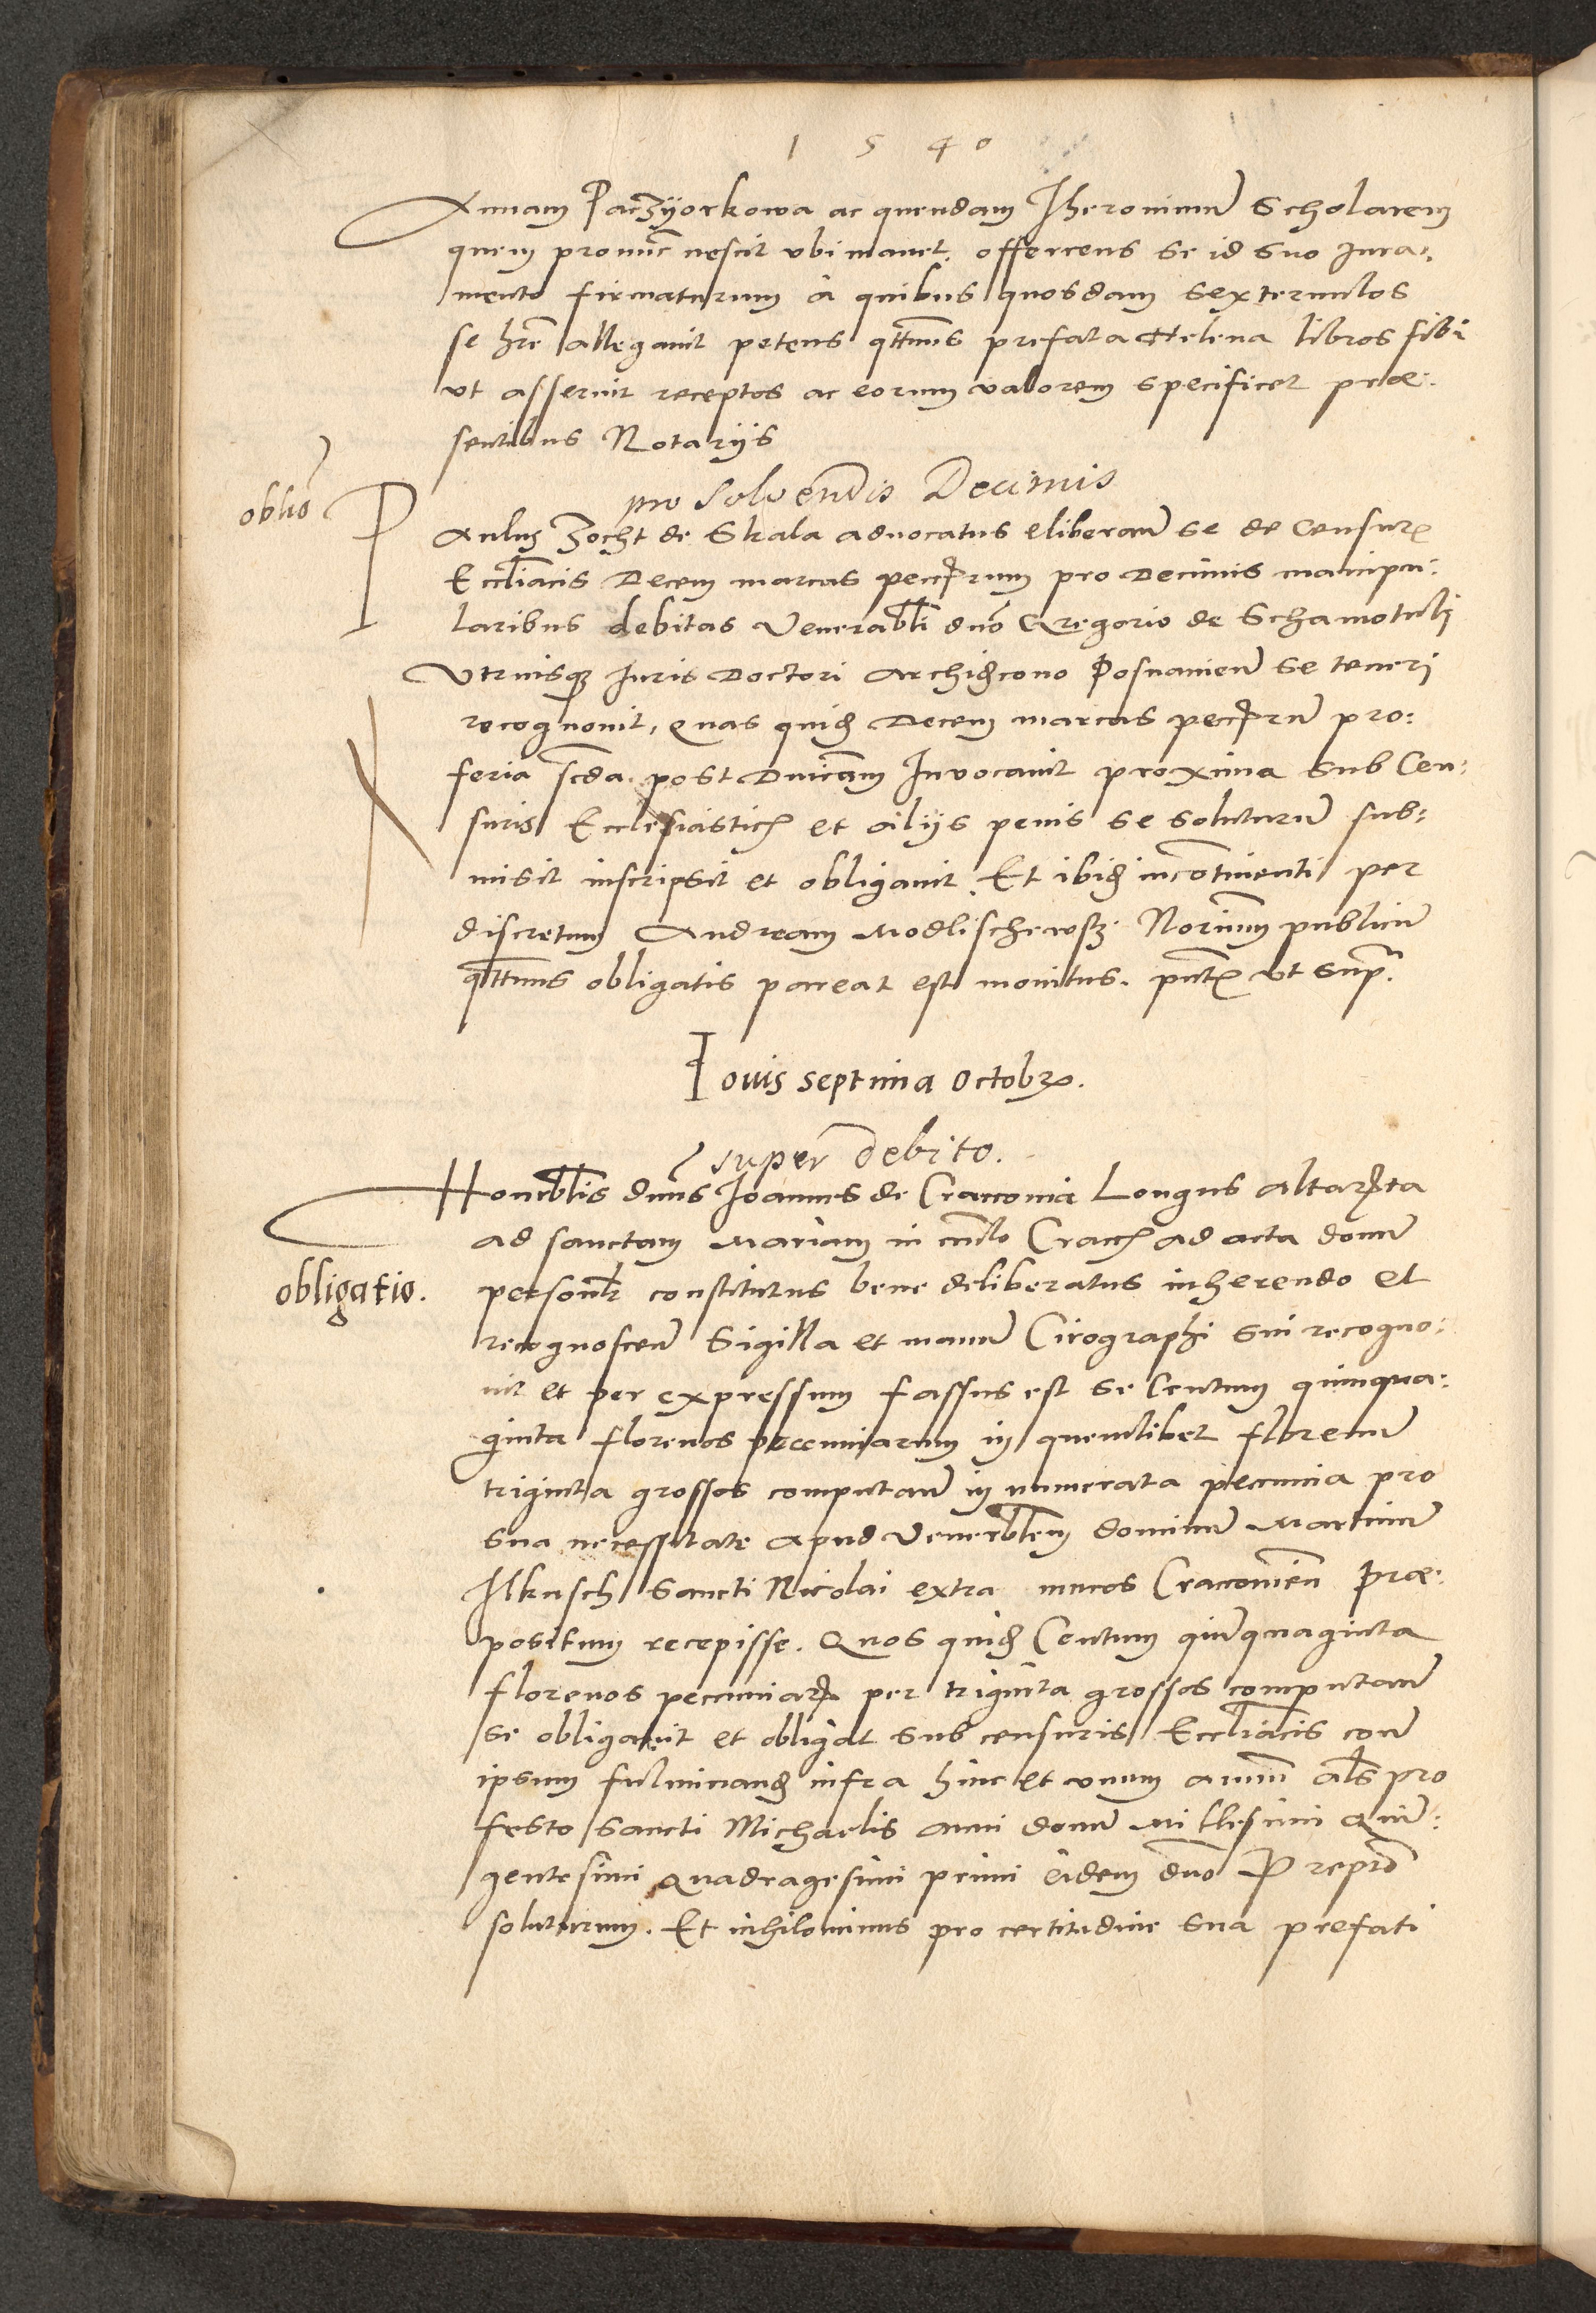 1540
Annam Paczÿorkowa ac quendam Iheronimũ Scholarem
quem pronũc nescit vbi manet. offerrens se id suo Iura:
mento firmaturum à quibus quosdam sexternulos
se hr̃e allegauit petens qtt̃nus prefata Helena libros sibi
vt asseruit receptos ac eorum valorem specificet præ:
sentibus Notarijs
pro soluendis Decimis
oblio͂
Paulus Zocht de Skala aduocatus eliberañ se de Censur̃
Eccl̃iacis Decem marcas pecc̃rum pro Decimis manipu:
laribus debitas Venerabl̃i dnõ Gregorio de Schamotuli
Vtriusqꝫ Iuris Doctori Archidc̃ono Posnanieñ se teneri
recognouit, Quas quid̃ Decem marcas pecc̃rũ pro:
feria sc̃da post Dnic̃am Inuocauit proxima sub Cen:
suris Ecclesiastic̃ et alijs penis se soluturũ sub:
misit inscripsit et obligauit. Et ibid̃ incontinenti per
discretum Andream Modlischewsꝫ Norium̃ publicũ
qtt̃nus obligatis pareat est monitus. pñtꝫ vt supr̃
Iouis septima Octobꝫ.
super debito.
Honorabl̃is dñus Ioannes de Cracouia Longus altarista
ad sanctam Mariam in circulo Cracc̃ ad acta domũ
obligatio.
personalr̃ constitutus bene deliberatus inherendo et
recognosceñ Sigilla et manũ Cirographi sui recogno:
uit et per expressum fassus est se Centum quinqua:
ginta florenos peccuniarum in quemlibet florenũ
triginta grossos computañ in numerata peccunia pro
sua necessitate apud Venerabl̃em dominũ Martinũ
Ilkusch Sancti Nicolai extra muros Cracouieñ Præ:
positum recepisse. Quos quid̃ Centum quinquaginta
florenos peccuniarꝫ per triginta grossos computañ
se obligauit et obligat sub censuris Eccl̃iacis cont̃
ipsum fulminand̃ infra hinc et vnum annũ al̃s pro
festo Sancti Michaelis anni domĩ Millesimi Quin:
gentesimi Quadragesimi primi eidem dño Præpt̃o
soluturum. Et nihilominus pro certitudine sua prefati